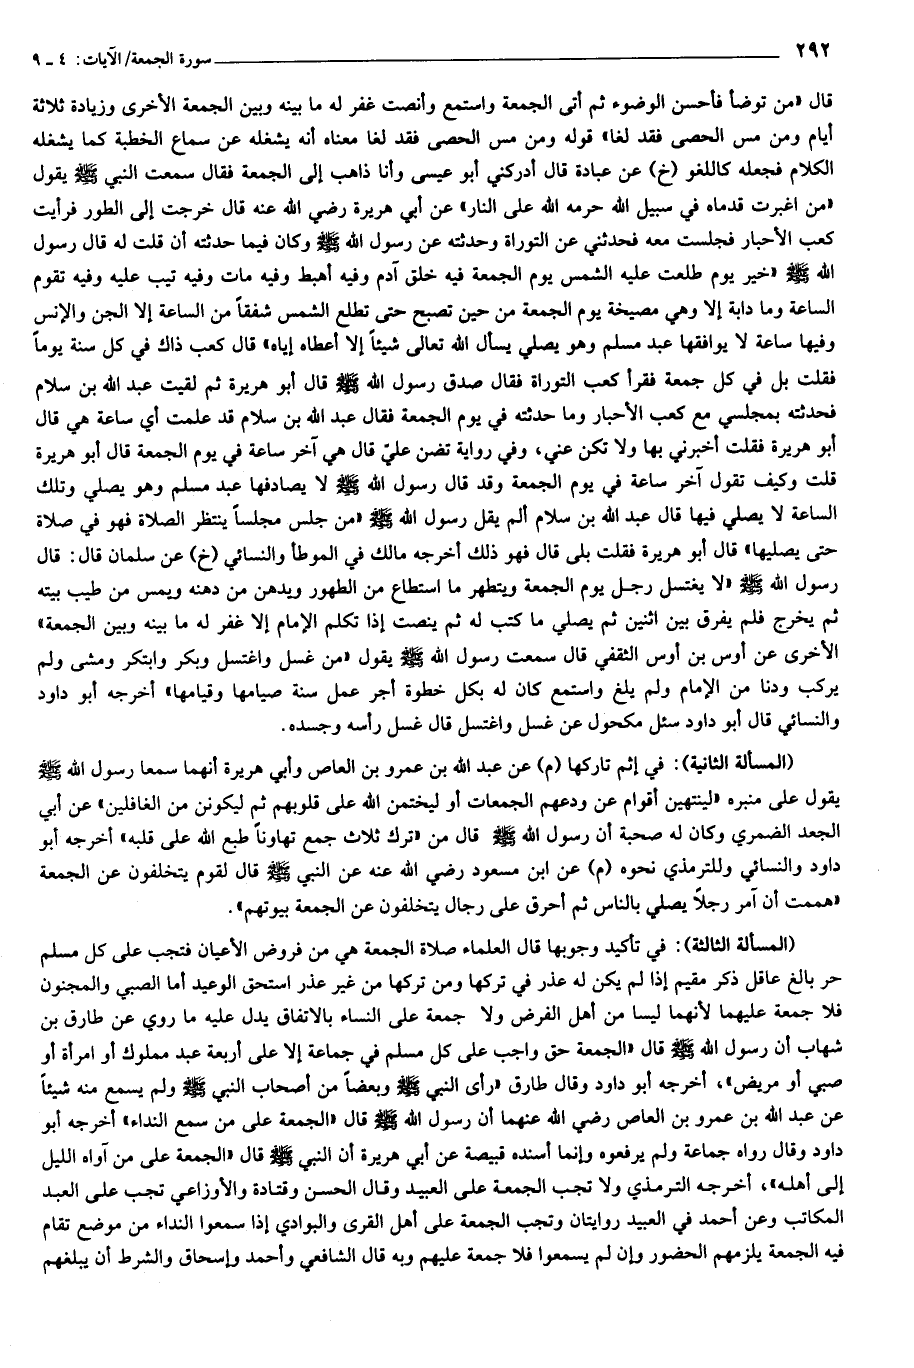 ٢٩٢ سورة الجمعة/ الآيات: ٤ ـ ٩
قال «من توضأ فأحسن الوضوء ثم أتى الجمعة واستمع وأنصت غفر له ما بينه وبين الجمعة الأخرى وزيادة ثلاثة
أيام ومن مس الحصى فقد لغا» قوله ومن مس الحصى فقد لغا معناه أنه يشغله عن سماع الخطبة كما يشغله
الكلام فجعله كاللغو (خ) عن عبادة قال أدركني أبو عيسى وأنا ذاهب إلى الجمعة فقال سمعت النبي ﷺ يقول
«من اغبرت قدماه في سبيل الله حرمه الله على النار» عن أبي هريرة رضي الله عنه قال خرجت إلى الطور فرأيت
كعب الأحبار فجلست معه فحدثني عن التوراة وحدثته عن رسول الله ﷺ وكان فيما حدثته أن قلت له قال رسول
الله ﷺ «خير يوم طلعت عليه الشمس يوم الجمعة فيه خلق آدم وفيه أهبط وفيه مات وفيه تيب عليه وفيه تقوم
الساعة وما دابة إلا وهي مصيخة يوم الجمعة من حين تصبح حتى تطلع الشمس شفقاً من الساعة إلا الجن والإنس
وفيها ساعة لا يوافقها عبد مسلم وهو يصلي يسأل الله تعالى شيئاً إلا أعطاه إياه» قال كعب ذاك في كل سنة يوماً
فقلت بل في كل جمعة فقرأ كعب التوراة فقال صدق رسول الله ﷺ قال أبو هريرة ثم لقيت عبد الله بن سلام
فحدثته بمجلسي مع كعب الأحبار وما حدثته في يوم الجمعة فقال عبد الله بن سلام قد علمت أي ساعة هي قال
أبو هريرة فقلت أخبرني بها ولا تكن عني، وفي رواية تضن عليّ قال هي آخر ساعة في يوم الجمعة قال أبو هريرة
قلت وكيف تقول آخر ساعة في يوم الجمعة وقد قال رسول الله ﷺ لا يصادفها عبد مسلم وهو يصلي وتلك
الساعة لا يصلي فيها قال عبد الله بن سلام ألم يقل رسول الله ﷺ «من جلس مجلساً ينتظر الصلاة فهو في صلاة
حتى يصليها» قال أبو هريرة فقلت بلى قال فهو ذلك أخرجه مالك في الموطأ والنسائي (خ) عن سلمان قال: قال
رسول الله ﷺ «لا يغتسل رجل يوم الجمعة ويتطهر ما استطاع من الطهور ويدهن من دهنه ويمس من طيب بيته
ثم يخرج فلم يفرق بين اثنين ثم يصلي ما كتب له ثم ينصت إذا تكلم الإمام إلا غفر له ما بينه وبين الجمعة»
الأخرى عن أوس بن أوس الثقفي قال سمعت رسول الله ﷺ يقول «من غسل واغتسل وبكر وابتكر ومشى ولم
يركب ودنا من الإمام ولم يلغ واستمع كان له بكل خطوة أجر عمل سنة صيامها وقيامها» أخرجه أبو داود
والنسائي قال أبو داود سئل مكحول عن غسل واغتسل قال غسل رأسه وجسده.
(المسألة الثانية): في إثم تاركها (م) عن عبد الله بن عمرو بن العاص وأبي هريرة أنهما سمعا رسول الله ﷺ
يقول على منبره «لينتهين أقوام عن ودعهم الجمعات أو ليختمن الله على قلوبهم ثم ليكونن من الغافلين» عن أبي
الجعد الضمري وكان له صحبة أن رسول الله ﷺ قال من «ترك ثلاث جمع تهاوناً طبع الله على قلبه» أخرجه أبو
داود والنسائي وللترمذي نحوه (م) عن ابن مسعود رضي الله عنه عن النبي ﷺ قال لقوم يتخلفون عن الجمعة
«هممت أن آمر رجلاً يصلي بالناس ثم أحرق على رجال يتخلفون عن الجمعة بيوتهم».
(المسألة الثالثة): في تأكيد وجوبها قال العلماء صلاة الجمعة هي من فروض الأعيان فتجب على كل مسلم
حر بالغ عاقل ذكر مقيم إذا لم يكن له عذر في تركها ومن تركها من غير عذر استحق الوعيد أما الصبي والمجنون
فلا جمعة عليهما لأنهما ليسا من أهل الفرض ولا جمعة على النساء بالاتفاق يدل عليه ما روي عن طارق بن
شهاب أن رسول الله ﷺ قال «الجمعة حق واجب على كل مسلم في جماعة إلا على أربعة عبد مملوك أو امرأة أو
صبي أو مريض»، أخرجه أبو داود وقال طارق «رأى النبي ﷺ وبعضاً من أصحاب النبي ﷺ ولم يسمع منه شيئاً
عن عبد الله بن عمرو بن العاص رضي الله عنهما أن رسول الله ﷺ قال «الجمعة على من سمع النداء» أخرجه أبو
داود وقال رواه جماعة ولم يرفعوه وإنما أسنده قبيصة عن أبي هريرة أن النبي ﷺ قال «الجمعة على من آواه الليل
إلى أهله»، أخرجه الترمذي ولا تجب الجمعة على العبيد وقال الحسن وقتادة والأوزاعي تجب على العبد
المكاتب وعن أحمد في العبيد روايتان وتجب الجمعة على أهل القرى والبوادي إذا سمعوا النداء من موضع تقام
فيه الجمعة يلزمهم الحضور وإن لم يسمعوا فلا جمعة عليهم وبه قال الشافعي وأحمد وإسحاق والشرط أن يبلغهم